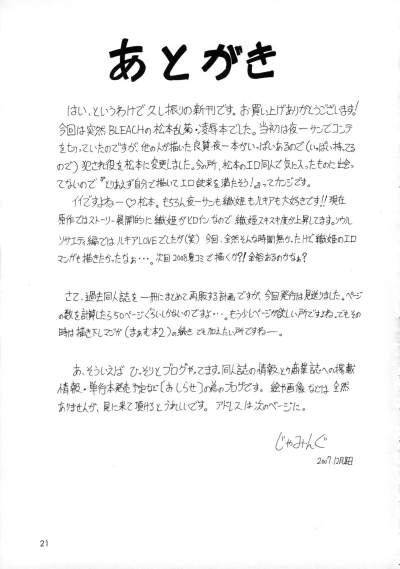 あとがき
はい、というわけで久し振りの新刊です。お買い上げありがとうございます!
今回は突然BLEACHの松本乱菊・凌辱本でした。当初は夜一サンでコンテ
をもっていたのですが、他の人が描いた良質夜一本がいっぱいあるので(いっぱい持ってる
ので)犯され役を松本に変更しました。今の所、松本のエロ同人で気に入ったものに出会っ
てないので『とりあえず自分で描いてエロ欲求を満たそう!』ってカンジです。
イイですよねー♡松本。もちろん夜一サンも織姫もルキアも大好きです!!現在
原作ではストーリー展開的に織姫がヒロインなので織姫スキスキ度が上昇してます。ソウル
ソサエティ編ではルキアLOVEでしたが(笑)今回、全然そんな時間無かったけど織姫のエロ
マンガも描きたかったなぁ…。次回2008夏コミで描くか?!余裕あるのかなぁ?
さて、過去同人誌を一冊にまとめて再販する計画ですが、今回発行は見送りました。ページ
の数を計算したら50ページくらいしかないのですよ…。もう少しページが欲しい所ですよね。でもその
時は描き下しマンガ(本2)の続きでも加えたい所ですねー。
あ、そういえばひっそりとブログやってます。同人誌の情報とか商業誌への掲載
情報・単行本発売予定など〔おしらせ〕の為のブログです。絵や画像などは全然
ありませんが、見に来て頂けるとうれしいです。アドレスは次のページに。
じゃみんぐ
2007.12月
21